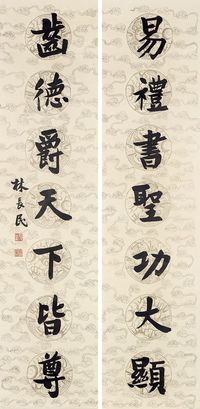 易禮書聖功大顯
齒德爵天下皆尊
林長民